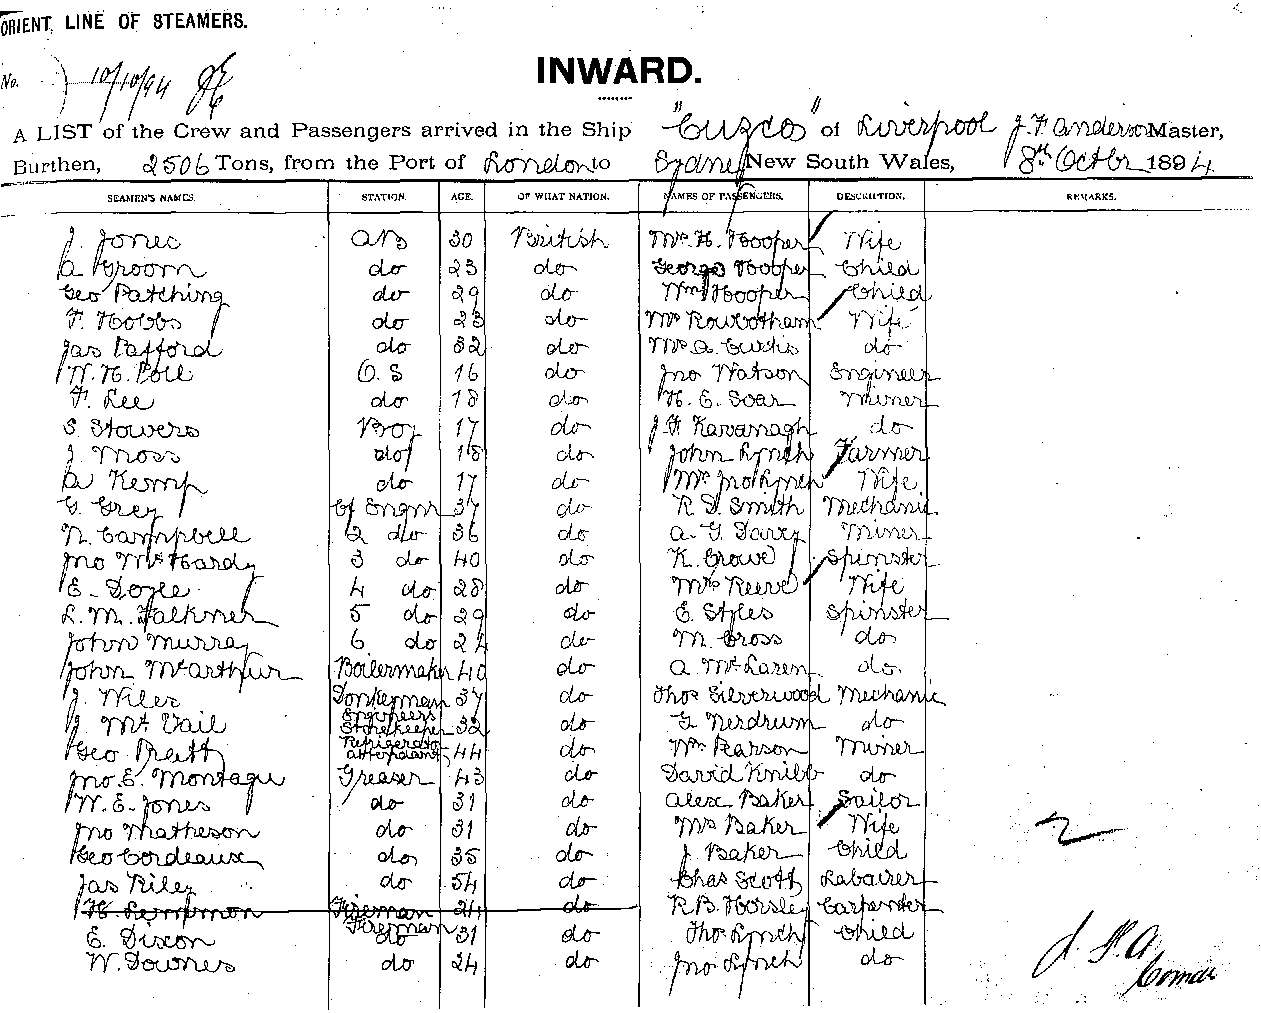 ORIENT LINE OF STEAMERS.
No. ) 10/10/94
INWARD.
A LIST of the Crew and Passengers arrived in the Ship "Cuzco" of Liverpool J. F. Anderson Master,
Burthen, 2506 Tons, from the Port of London to Sydney New South Wales, 8th Octbr 1894.
SEAMEN'S NAMES. STATION. AGE. OF WHAT NATION. NAMES OF PASSENGERS. DESCRIPTION. REMARKS.
J. Jones AB 30 British Mrs H. Hooper Wife
A Groom do 23 do George Hooper Child
Geo Patching do 29 do Wm Hooper Child
F. Hobbs do 23 do Mrs Rowbotham Wife
Jas Pafford do 32 do Mrs A. Curtis do
W. H. Pole O.S 16 do Jno Watson Engineer
F. Lee do 18 do H. E. Soar Miner
S. Stowers Boy 17 do J. F. Kavanagh do
J. Moss do 18 do John Lynch Farmer
A Kemp do 17 do Mrs Jno Lynch Wife
G. Grey Cf Engnr 37 do R. D. Smith Mechanic
N. Campbell 2 do 36 do A. G. Davey Miner
Jno McHardy 3 do 40 do K. Crowe Spinster
E. Doyle 4 do 28 do Mrs Reeve Wife
L. M. Falkner 5 do 29 do E. Styles Spinster
John Murray 6 do 24 do M. Cross do
John McArthur Boilermaker 40 do A. McLaren do
J. Wiler Donkeyman 37 do Thos Silverwood Mechanic
J. McVail Engineers Storekeeper 32 do G. Nerdrum do
Geo Pratt Refrigerator attendant 44 do Wm Pearson Miner
Jno E. Montague Greaser 43 do David Knibb do
W. E. Jones do 31 do Alex Baker Sailor
Jno Matheson do 31 do Mrs Baker Wife
Geo Cordeaux do 35 do J. Baker Child
Jas Riley do 54 do Chas Scott Labourer
H. Fireman 24 do R. B. Horsley Carpenter
E. Dixon Fireman do 31 do Thos Lynch Child
W. Downes do 24 do Jno Lynch do
J. F. A.